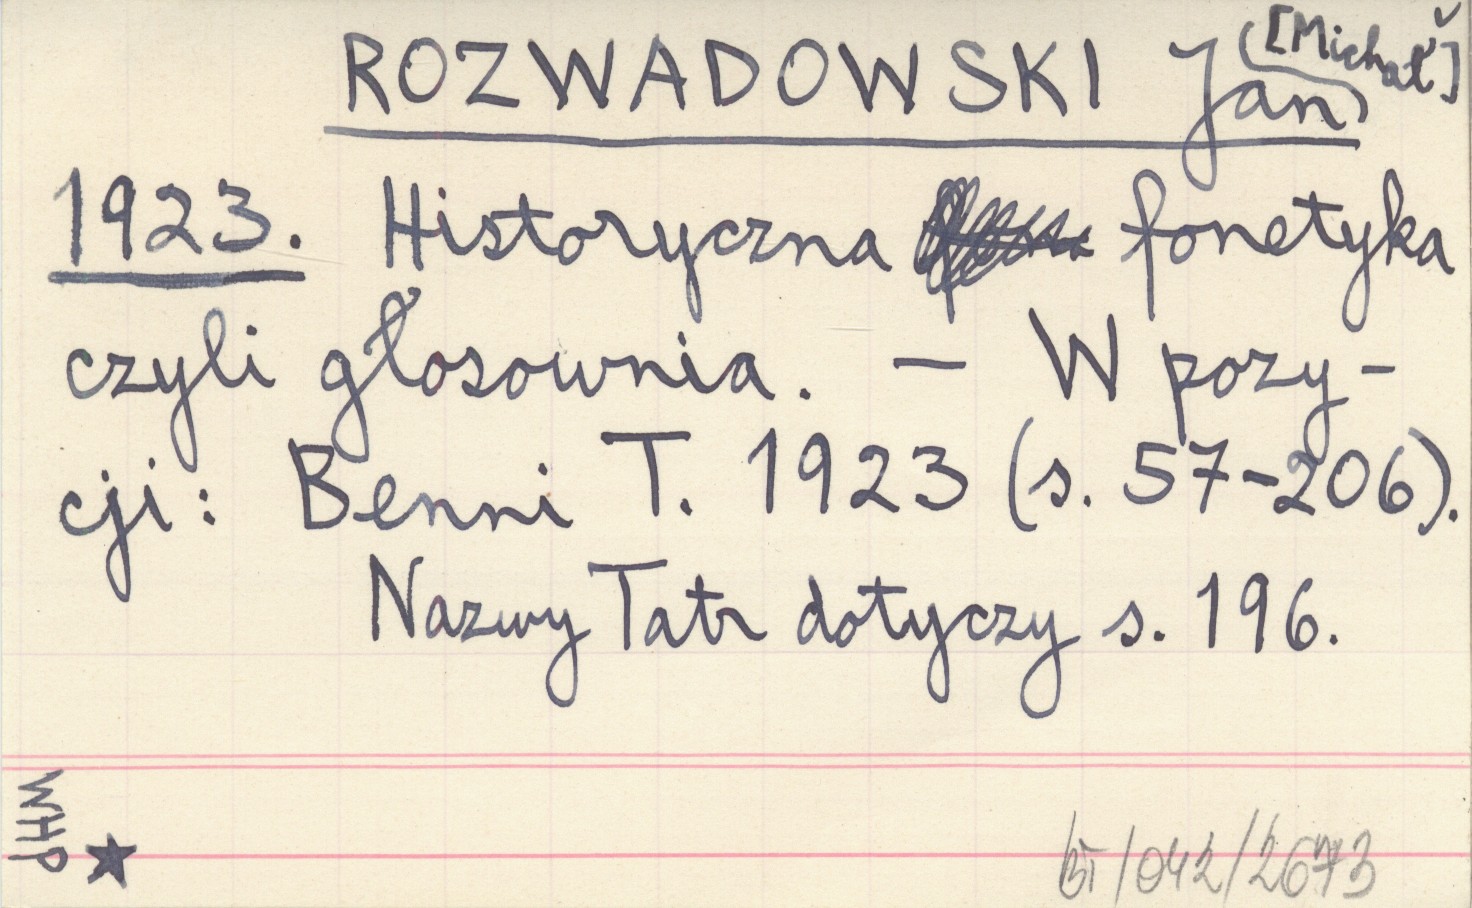 ROZWADOWSKI Jan [Michał]
1923. Historyczna fonetyka
czyli głosownia. — W pozy-
cji: Benni T. 1923 (s. 57-206).
Nazwy Tatr dotyczy s. 196.
WHP ★
BT/042/2673